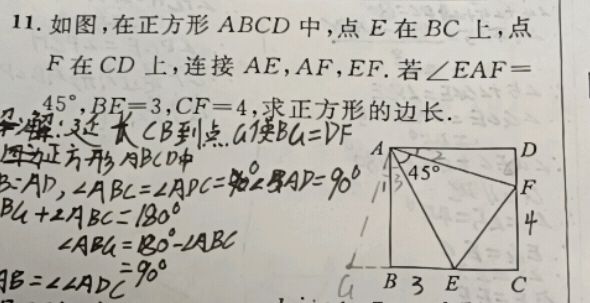 11. 如图,在正方形 ABCD 中,点 E 在 BC 上,点
F 在 CD 上,连接 AE,AF,EF. 若∠EAF=
45°,BE=3,CF=4,求正方形的边长.
解:延长CB到点G使BG=DF
因为正方形ABCD中
B=AD,∠ABC=∠ADC=90°∠BAD=90°
BG+∠ABC=180°
∠ABG=180°-∠ABC
=90°
AB=∠∠ADC
A
1
3
2
45°
D
F
4
G
B
3
E
C